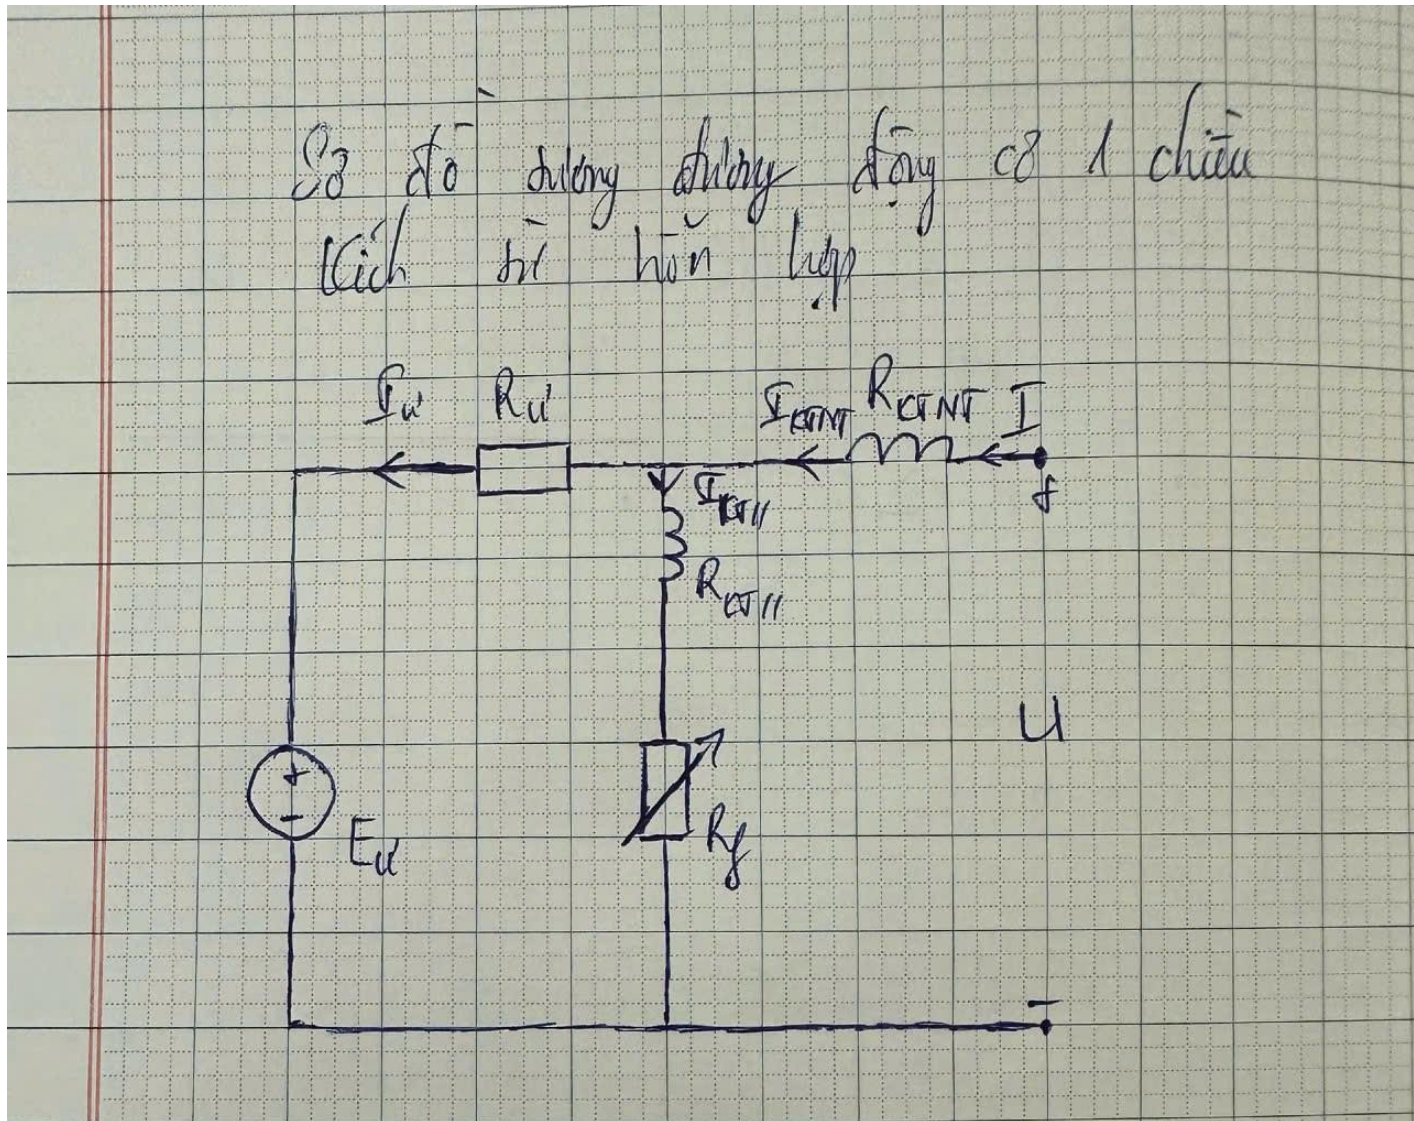 Sơ đồ tương đương động cơ 1 chiều
Kích từ hỗn hợp
Iư Rư IKTNT RKTNT I
+
IKT//
RKT//
U
+
-
Eư
Rf
-